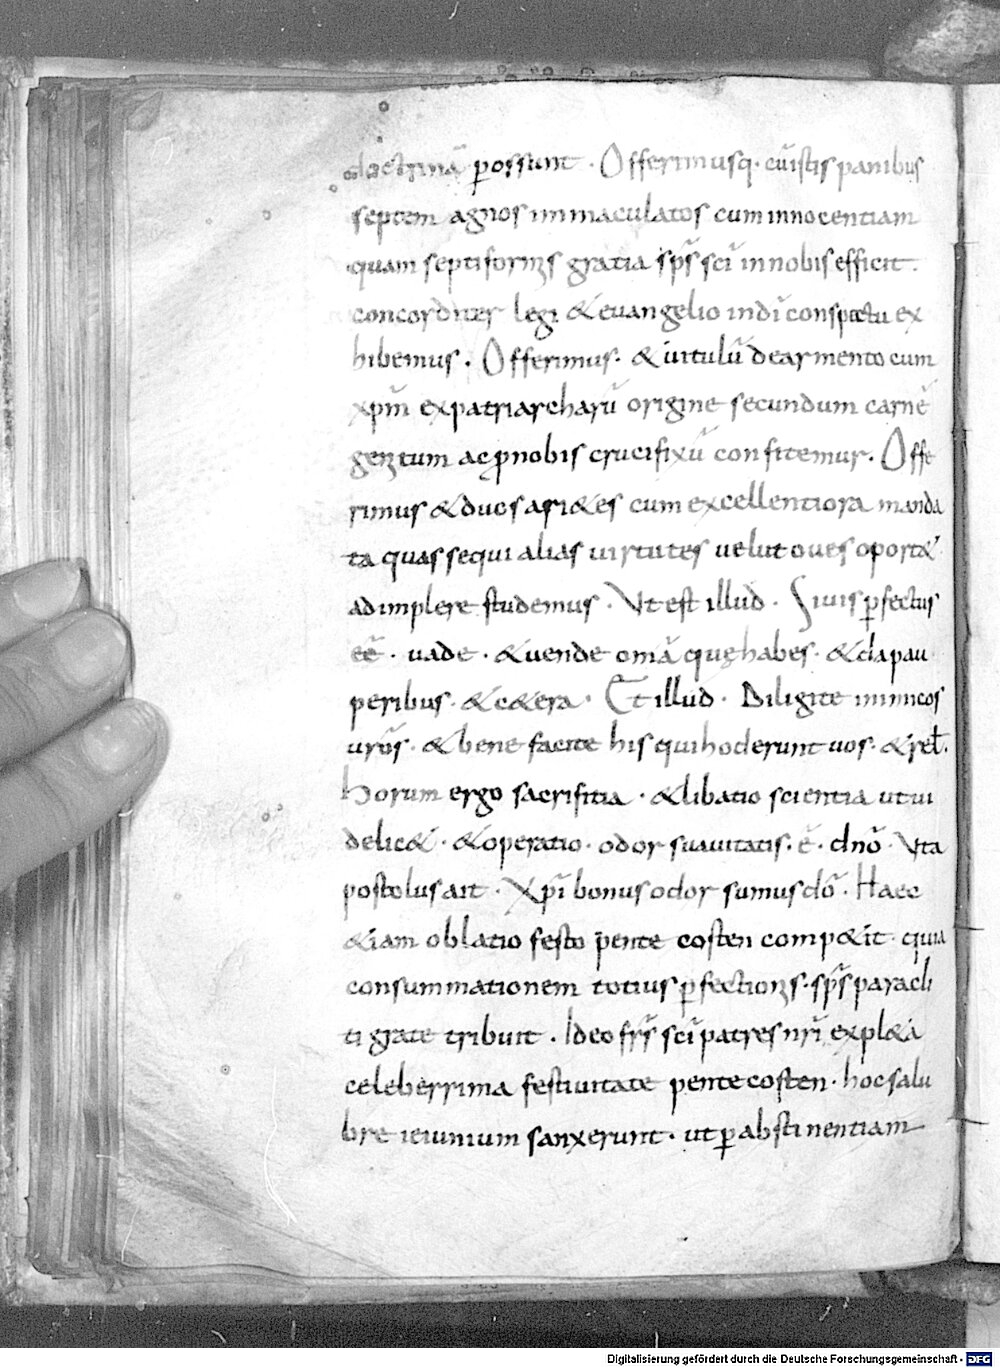 doctrinā possunt · Offerimusq· cū istis panibus
septem agnos immaculatos cum innocentiam
quam septiformis gratia sps̄ scī in nobis efficit ·
concorditer legi & euangelio in dī conspectu ex
hibemus · Offerimus · & uitulū de armento cum
xpm̄ ex patriarcharū origine secundum carnē
genitum ac ꝓ nobis crucifixū confitemur · Offe
rimus & duos ari&es cum excellentiora manda
ta quas sequi alias uirtutes uelut oues oport&
adimplere studemus · Ut est illud · Si uis ꝑfectus
eē · uade · & uende omā quę habes · & da pau
peribus · & c&era · Et illud · Diligite inimicos
urōs · & bene facite his qui hoderunt uos · & rel̄ ·
Horum ergo sacrifitia · & libatio scientia ut ui
delic& · & operatio · odor suauitatis · ē · dnō · Ut a
postolus ait · Xpī bonus odor sumus dō · Haec
&iam oblatio festo pente costen comp&it · quia
consummationem totius ꝑfectionis · sps̄ paracli
ti grate tribuit · Ideo frs̄ scī patres nrī expl&a
celeberrima festiuitate pentecosten · hoc salu
bre ieiunium sanxerunt · ut ꝑ abstinentiam
Digitalisierung gefördert durch die Deutsche Forschungsgemeinschaft - DFG